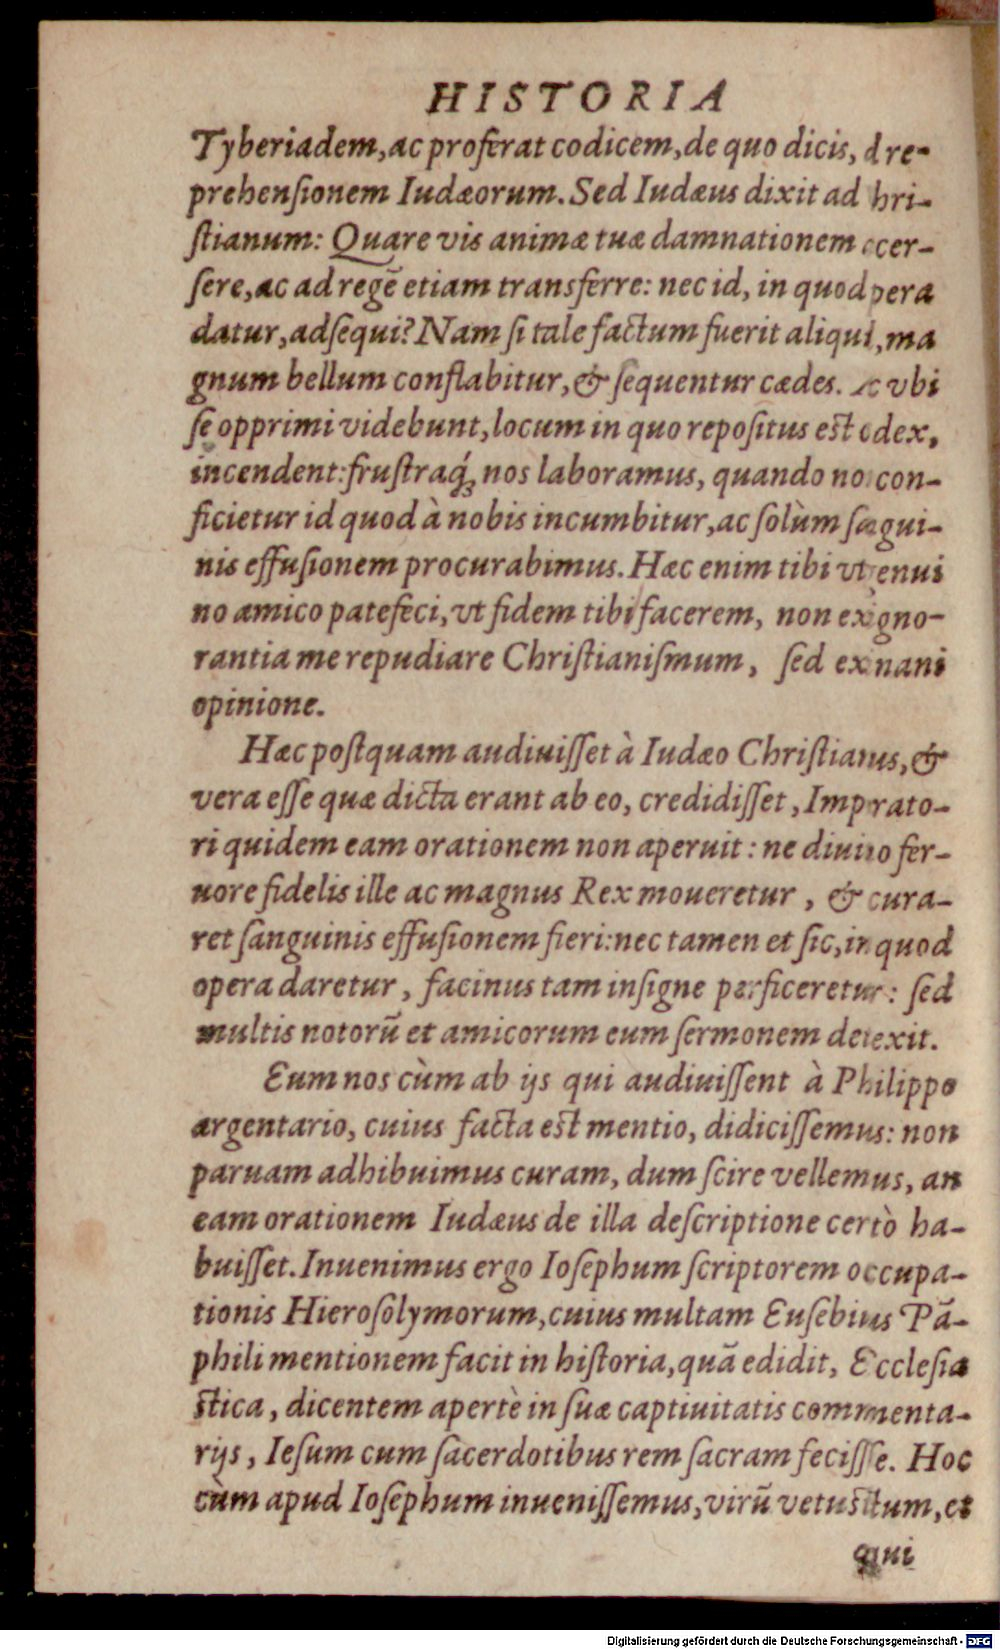 HISTORIA
Tyberiadem, ac proferat codicem, de quo dicis, d re-
prehenſionem Iudæorum. Sed Iudæus dixit ad hri-
ſtianum: Quare vis animæ tuæ damnationem ccer-
ſere, ac ad regẽ etiam transferre: nec id, in quod pera
datur, adſequi? Nam ſi tale factum fuerit aliqui, ma
gnum bellum conflabitur, & ſequentur cædes. Ac vbi
ſe opprimi videbunt, locum in quo repoſitus est odex,
incendent: fruſtraq́; nos laboramus, quando no con-
ficietur id quod à nobis incumbitur, ac ſolùm ſangui-
nis effuſionem procurabimus. Hæc enim tibi vt genui
no amico patefeci, vt fidem tibi facerem, non ex igno-
rantia me repudiare Chriſtianiſmum, ſed ex inani
opinione.
Hæc poſtquam audiuiſſet à Iudæo Chriſtianus, &
vera eſſe quæ dicta erant ab eo, credidiſſet, Imperato-
ri quidem eam orationem non aperuit: ne diuino fer-
uore fidelis ille ac magnus Rex moueretur, & cura-
ret ſanguinis effuſionem fieri: nec tamen et ſic, in quod
opera daretur, facinus tam inſigne perficeretur: ſed
multis notorũ et amicorum eum ſermonem detexit.
Eum nos cùm ab ijs qui audiuiſſent à Philippo
argentario, cuius facta est mentio, didiciſſemus: non
paruam adhibuimus curam, dum ſcire vellemus, an
eam orationem Iudæus de illa deſcriptione certò ha-
buiſſet. Inuenimus ergo Ioſephum ſcriptorem occupa-
tionis Hieroſolymorum, cuius multam Euſebius Pã-
phili mentionem facit in hiſtoria, quã edidit, Eccleſia
stica, dicentem apertè in ſuæ captiuitatis commenta-
rijs, Ieſum cum ſacerdotibus rem ſacram feciſſe. Hoc
cum apud Ioſephum inueniſſemus, virũ vetustum, et
qui
Digitalisierung gefördert durch die Deutsche Forschungsgemeinschaft - DFG